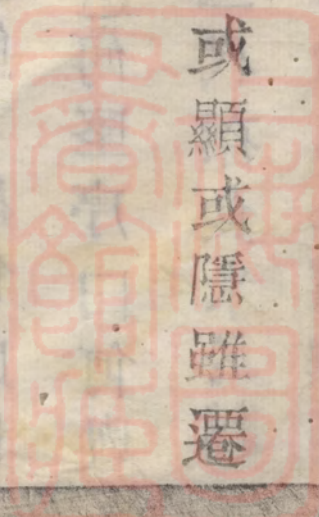 或顯或隱雖遷